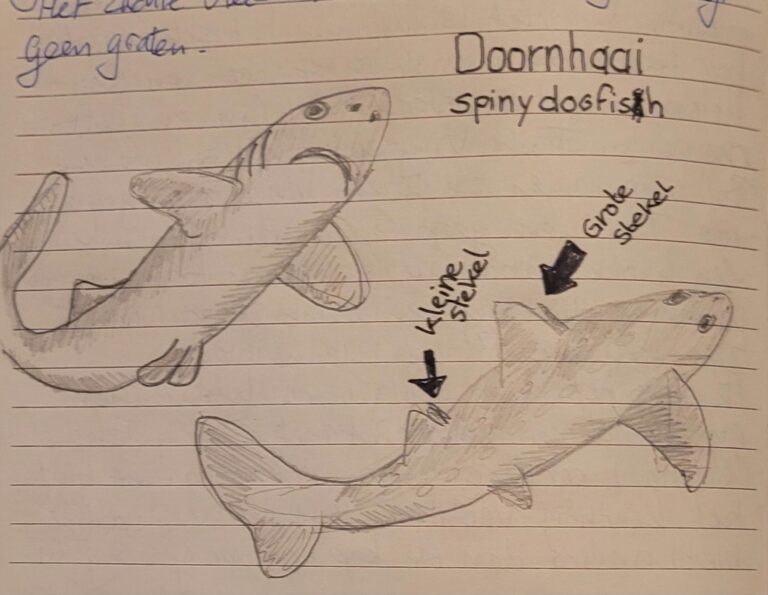 Het
geen graten.
Doornhaai
spiny dogfish
Grote
stekel
kleine
stekel